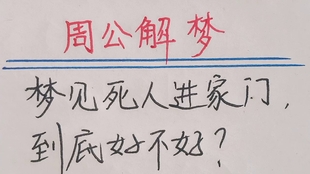 周公解梦
梦见死人进家门，
到底好不好？